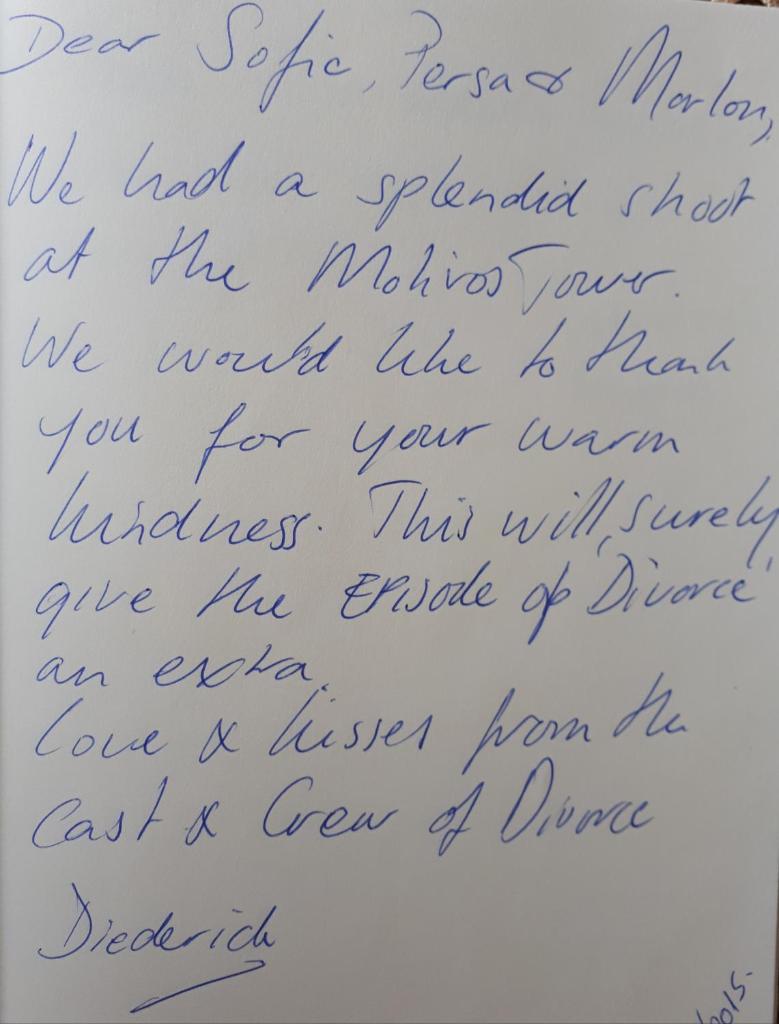 Dear Sofie, Persa & Marlon,
We had a splendid shoot
at the Molivos Tower.
We would like to thank
you for your warm
kindness. This will surely
give the Episode of 'Divorce'
an extra.
Love & kisses from the
Cast & Crew of Divorce
Diederick
2015.